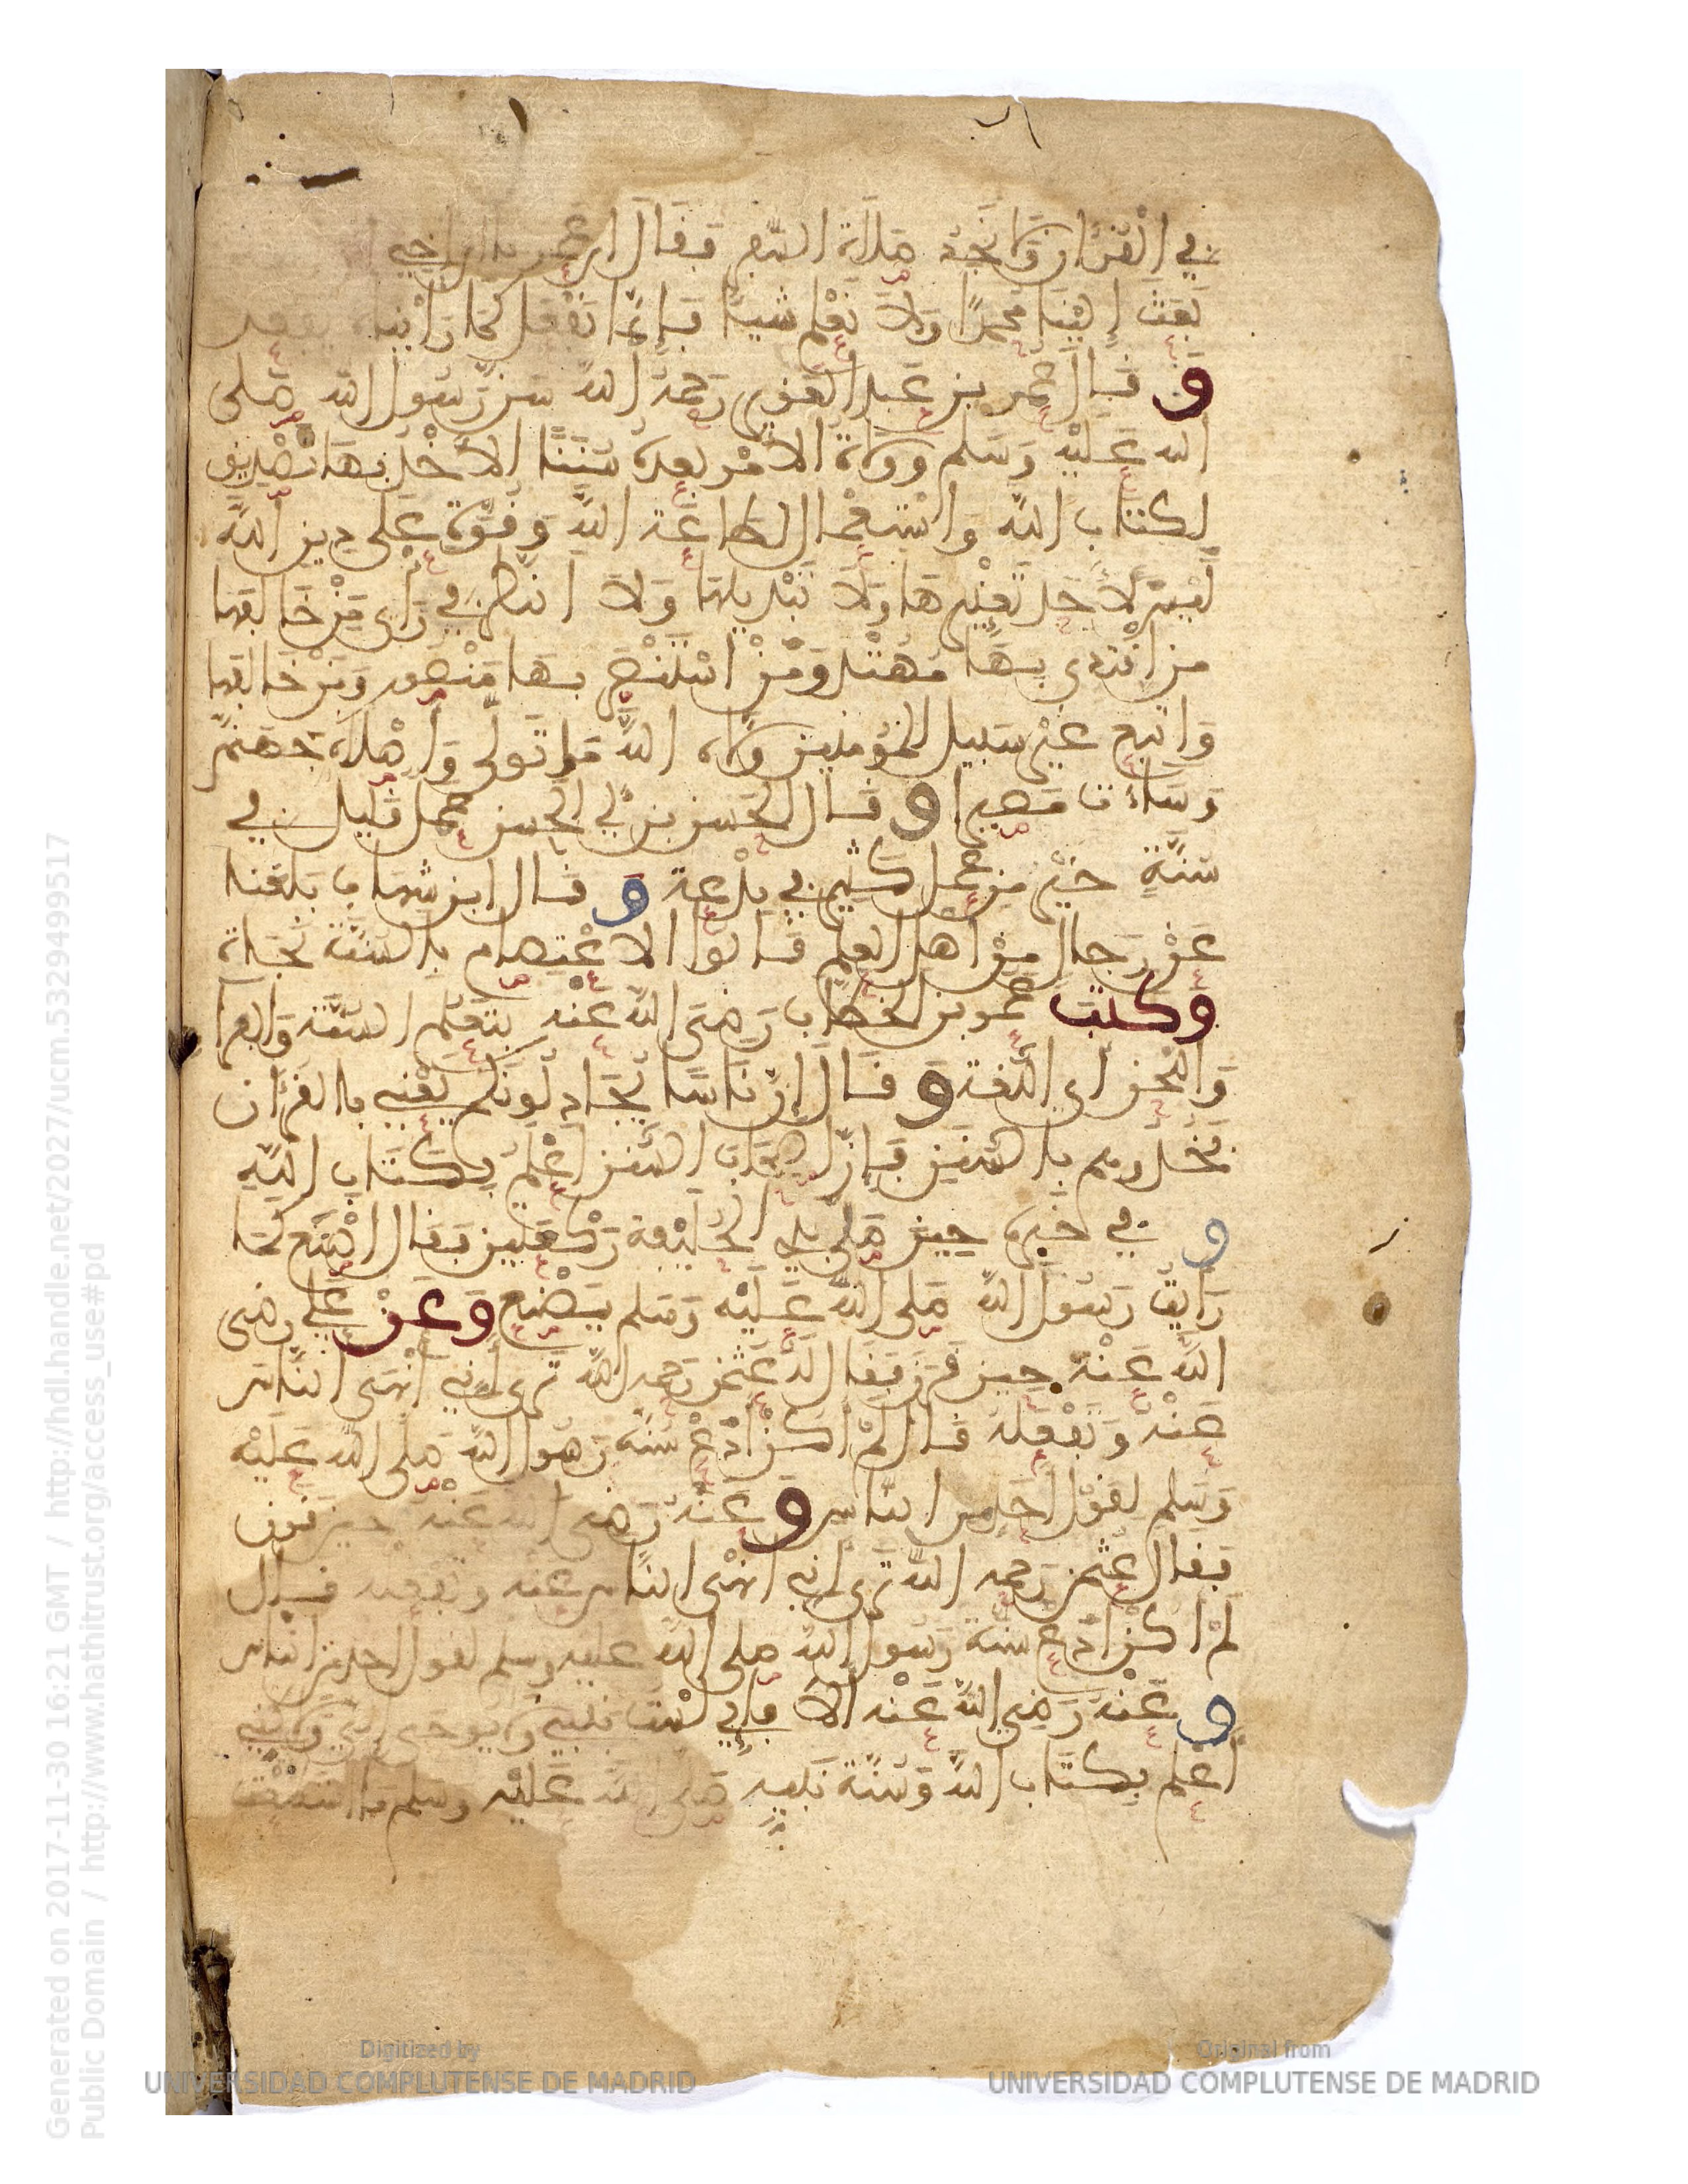 في القرءان ولا نجد صلاة السفر فقال ابن عمر يا ابن اخي
بعث إلينا محمدا ولا نعلم شيئا فإنما نفعل كما رأيناه يفعل
وقال عمر بن عبد العزيز رحمه الله سن رسول الله صلى
الله عليه وسلم وولاة الأمر بعده سننا الأخذ بها تصديق
لكتاب الله واستعمال لطاعة الله وقوة على دين الله
ليس لأحد تغييرها ولا تبديلها ولا النظر في رأي من خالفها
من اقتدى بها مهتد ومن استنصر بها منصور ومن خالفها
واتبع غير سبيل المؤمنين ولاه الله ما تولى وأصلاه جهنم
وساءت مصيرا وقال الحسن بن أبي الحسن عمل قليل في
سنة خير من عمل كثير في بدعة وقال ابن شهاب بلغنا
عن رجال من أهل العلم قالوا الاعتصام بالسنة نجاة
وكتب عمر بن الخطاب رضي الله عنه بتعلم السنة والفرا
واللحن اي اللغة وقال إن ناسا يجادلونكم يعني بالقرءان
فخذوهم بالسنن فإن أصحاب السنن أعلم بكتاب الله
وفي خبره حين صلى بذي الحليفة ركعتين فقال اصنع كما
رأيت رسول الله صلى الله عليه وسلم يصنع وعن علي رضي
الله عنه حين قرن فقال له عثمن رحمه الله ترى أني أنهى الناس
عنه وتفعله قال لم اكن ادع سنة رسول الله صلى الله عليه
وسلم لقول أحد من الناس وعنه رضي الله عنه حين قرن
فقال عثمن رحمه الله ترى اني انهى الناس عنه وتفعله قال
لم اكن ادع سنة رسول الله صلى الله عليه وسلم لقول احد من الناس
وعنه رضي الله عنه ألا وإني لست بنبي ولا يوحى إلي ولكني
أعمل بكتاب الله وسنة نبيه صلى الله عليه وسلم ما استطعت
Generated on 2017-11-30 16:21 GMT / http://hdl.handle.net/2027/ucm.5329499517
Public Domain / http://www.hathitrust.org/access_use#pd
Digitized by
UNIVERSIDAD COMPLUTENSE DE MADRID
Original from
UNIVERSIDAD COMPLUTENSE DE MADRID